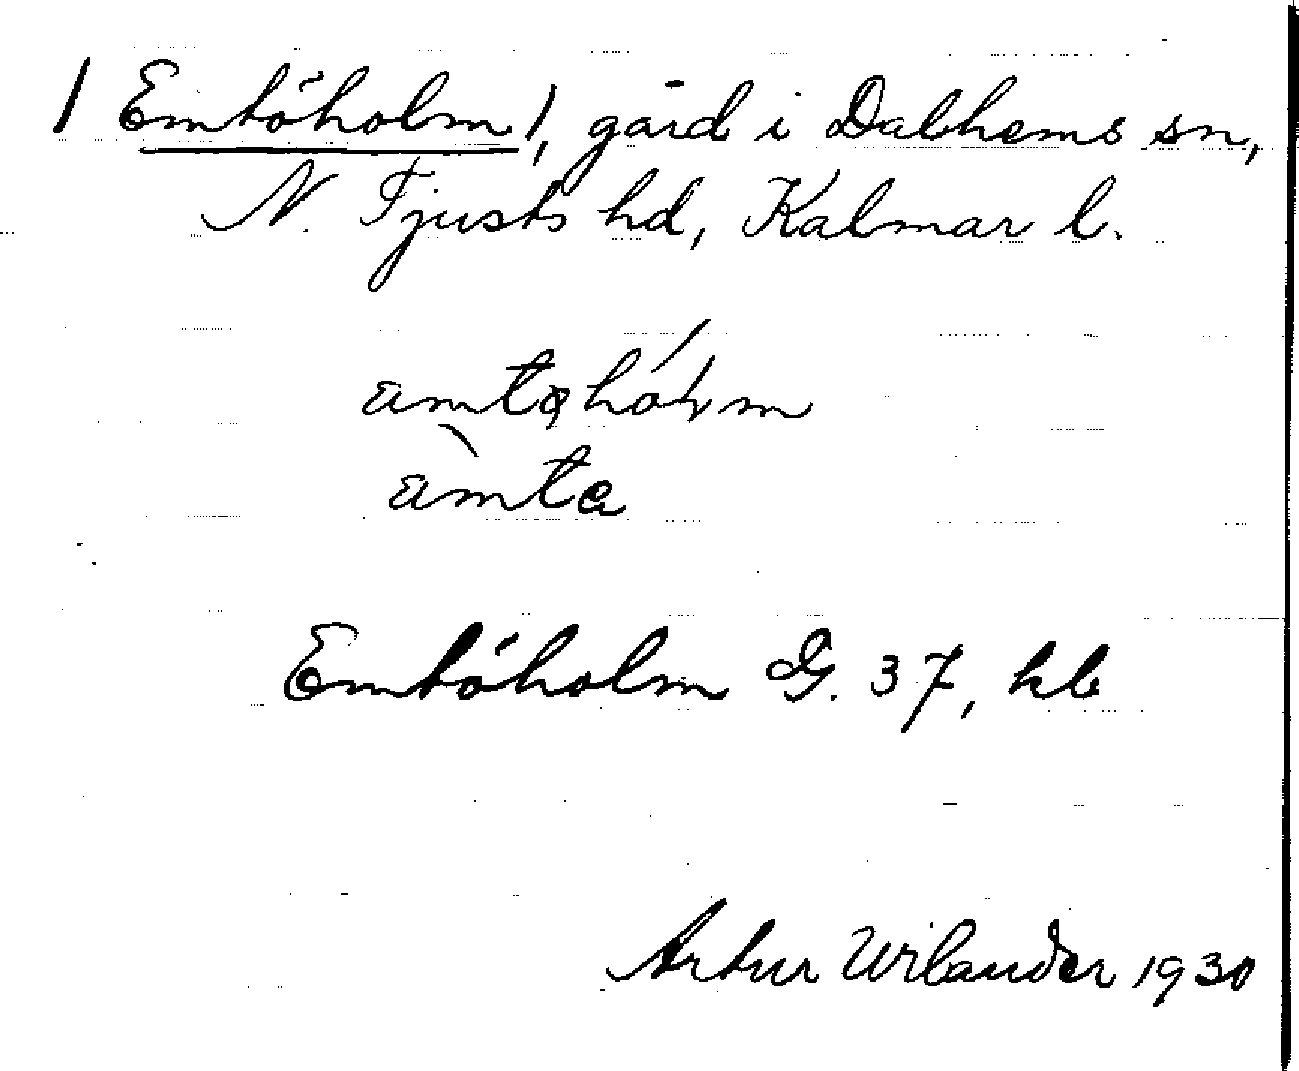 / Emtöholm /, gård i Dalhems sn,
N. Tjusts hd, Kalmar l.
Emtöholm G. 37, kb
Artur Wilander 1930